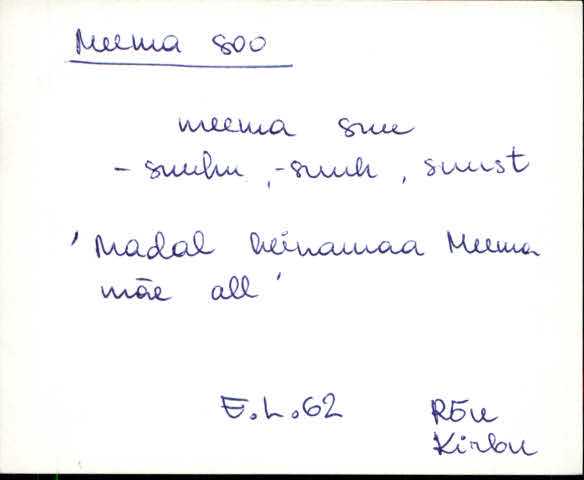 Meema soo
meema suu
- suuhu, - suuh, suust
'Madal heinamaa Meema
mäe all'
E.L.62 Rõu
Kirbu